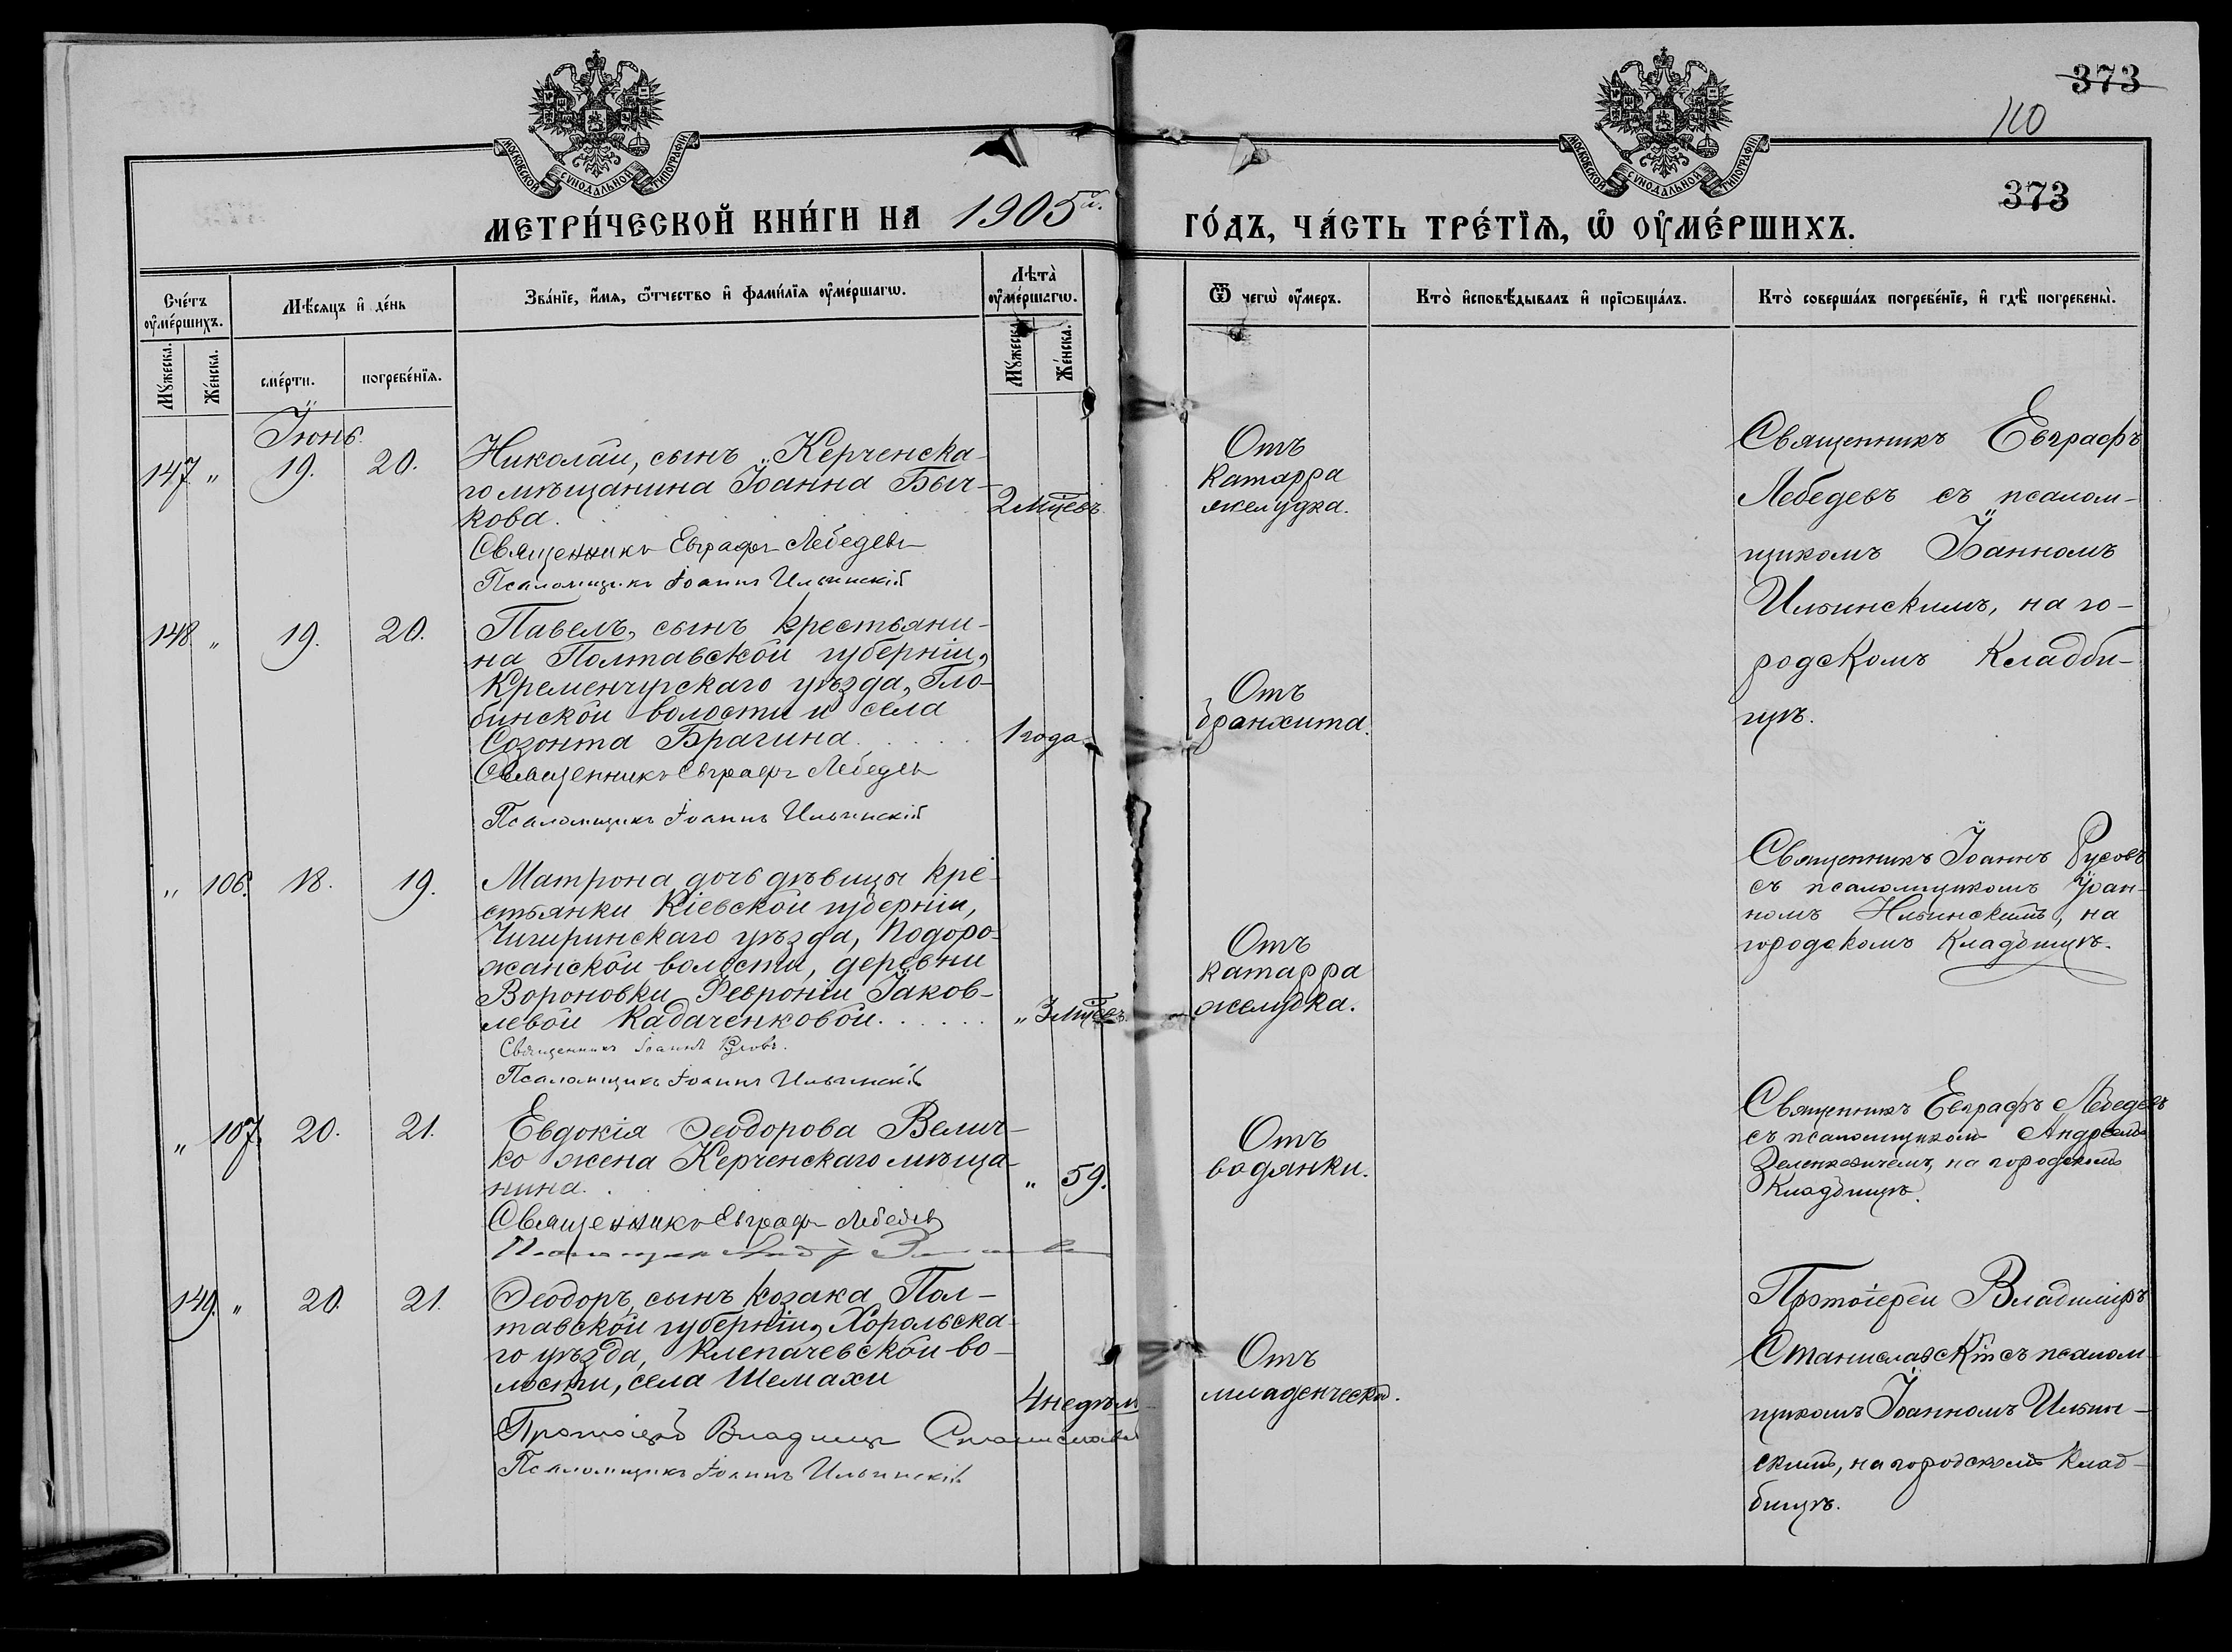 373
110
373
МОСКОВСКОЙ СУНОДАЛЬНОЙ ТИПОГРАФІИ
МОСКОВСКОЙ СУНОДАЛЬНОЙ ТИПОГРАФІИ
МЕТРИ́ЧЕСКОЙ КНИ́ГИ НА 1905й.
ГО́ДЪ, ЧА́СТЬ ТРЕ́ТІѦ, Ѡ҆ ОУ҆МЕ́РШИХЪ.
Сче́тъ оу҆ме́ршихъ.
Мѣ́сяцъ и҆ де́нь
Зва́нїе, и҆́мя, ѻ҆́тчество и҆ фами́лїя оу҆ме́ршагѡ.
Лѣта̀ оу҆ме́ршагѡ.
Ѿ чегѡ̀ оу҆́меръ.
Кто̀ и҆сповѣ́дывалъ и҆ прїѡбща́лъ.
Кто̀ соверша́лъ погребе́нїе, и҆ гдѣ̀ погребены̀.
Мꙋ́жеска.
Же́нска.
сме́рти.
погребе́нїя.
Мꙋ́жеска.
Же́нска.
Іюнь.
147. „ 19. 20.
Николай, сынъ Керченска-
го мѣщанина Іоанна Быч-
кова.
2 мцевъ
Священникъ Евграфъ Лебедевъ
Псаломщикъ Іоаннъ Ильинскій
Отъ
катарра
желудка.
Священникъ Евграфъ
Лебедевъ съ псалом-
щикомъ Іоанномъ
Ильинскимъ, на го-
родскомъ кладби-
щѣ.
148 „ 19. 20.
Павелъ, сынъ крестьяни-
на Полтавской губерніи,
Кременчугскаго уѣзда, Гло-
бинской волости и села
Созонта Брагина.
1 года
Священникъ Евграфъ Лебедевъ
Псаломщикъ Іоаннъ Ильинскій
Отъ
бранхита.
„ 106. 18. 19.
Матрона дочь дѣвицы кре-
стьянки Кіевской губерніи,
Чигиринскаго уѣзда, Подоро-
жанской волости, деревни
Вороновки Февроніи Іаков-
левой Кадаченковой.
„ 3 мцевъ.
Священникъ Іоаннъ Русовъ.
Псаломщикъ Іоаннъ Ильинскій
Отъ
катарра
желудка.
Священникъ Іоаннъ Русовъ
съ псаломщикомъ Іоан-
номъ Ильинскимъ, на
городскомъ кладбищѣ.
„ 107. 20. 21.
Евдокія Ѳеодорова Велич-
ко жена Керченскаго мѣща-
нина.
„ 59.
Священникъ Евграфъ Лебедевъ
Отъ
водянки.
Священникъ Евграфъ Лебедевъ
съ псаломщикомъ Андреемъ
Зеленкевичемъ, на городскомъ
кладбищѣ.
149. „ 20. 21.
Ѳеодоръ, сынъ козака Пол-
тавской губерніи, Хорольска-
го уѣзда, Клепачевской во-
лости, села Шемахи
4 недѣл
Протоіерей Владимиръ Станиславск
Псаломщикъ Іоаннъ Ильинскій
Отъ
младенческ.
Протоіерей Владиміръ
Станиславскій съ псалом-
щикомъ Іоанномъ Ильин-
скимъ, на городскомъ клад-
бищѣ.